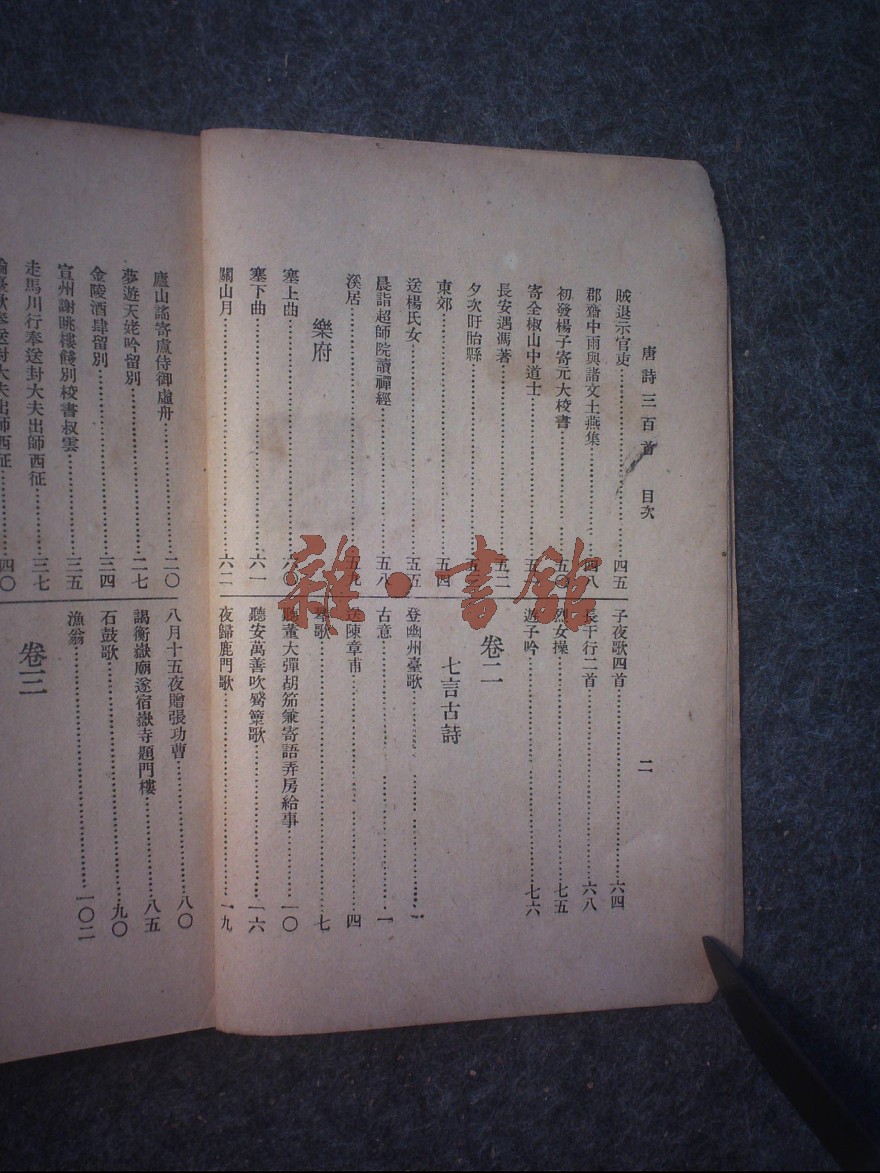 唐詩三百首 目次 二
賊退示官吏……四五
郡齋中雨與諸文士燕集……四八
初發楊子寄元大校書……五〇
寄全椒山中道士……五
長安遇馮著……五二
夕次盱眙縣……五
東郊……五四
送楊氏女……五五
晨詣超師院讀禪經……五八
溪居……五九
樂府
塞上曲……六〇
塞下曲……六一
關山月……六二
子夜歌四首……六四
長干行二首……六八
烈女操……七五
遊子吟……七六
卷二
七言古詩
登幽州臺歌……一
古意……一
送陳章甫……四
琴歌……七
聽董大彈胡笳兼寄語弄房給事……一〇
聽安萬善吹觱篥歌……一六
夜歸鹿門歌……一九
廬山謠寄盧侍御虛舟……二〇
夢遊天姥吟留別……二七
金陵酒肆留別……三四
宣州謝眺樓餞別校書叔雲……三五
走馬川行奉送封大夫出師西征……三七
輪臺歌奉送封大夫出師西征……四〇
八月十五夜贈張功曹……八〇
謁衡嶽廟遂宿嶽寺題門樓……八五
石鼓歌……九〇
漁翁……一〇二
卷三
雜·書館